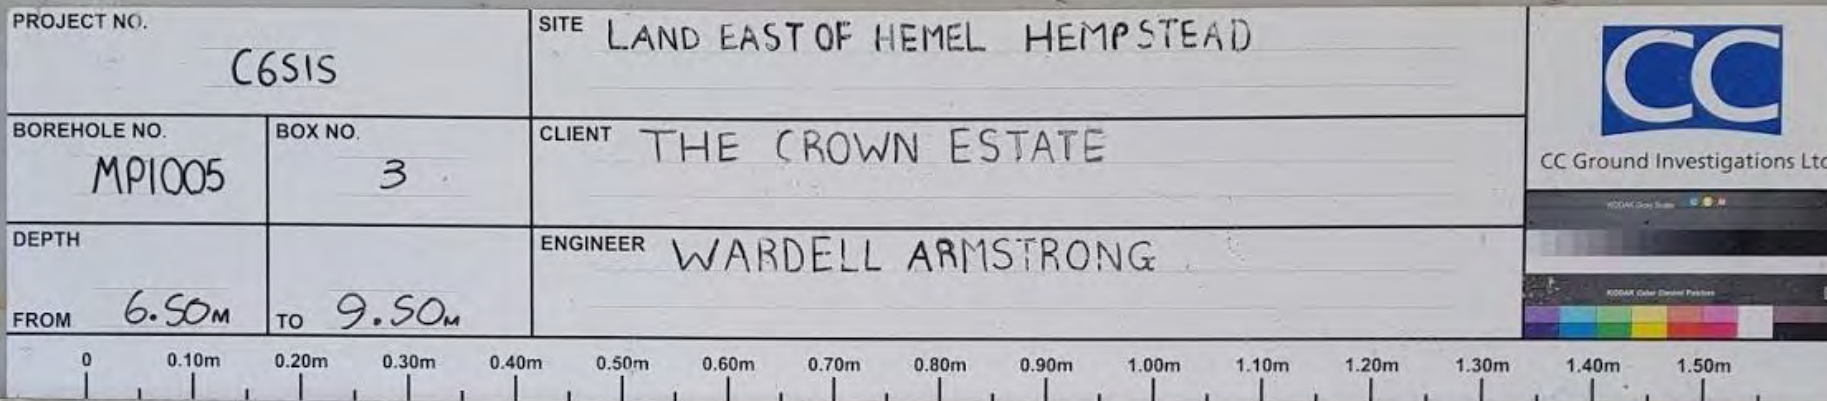 PROJECT NO.
C6515
SITE LAND EAST OF HEMEL HEMPSTEAD
BOREHOLE NO.
MP1005
BOX NO.
3
CLIENT THE CROWN ESTATE
DEPTH
FROM 6.50M TO 9.50M
ENGINEER WARDELL ARMSTRONG
CC
CC Ground Investigations Ltd
KODAK Gray Scale C Y M
KODAK Color Control Patches
0 0.10m 0.20m 0.30m 0.40m 0.50m 0.60m 0.70m 0.80m 0.90m 1.00m 1.10m 1.20m 1.30m 1.40m 1.50m